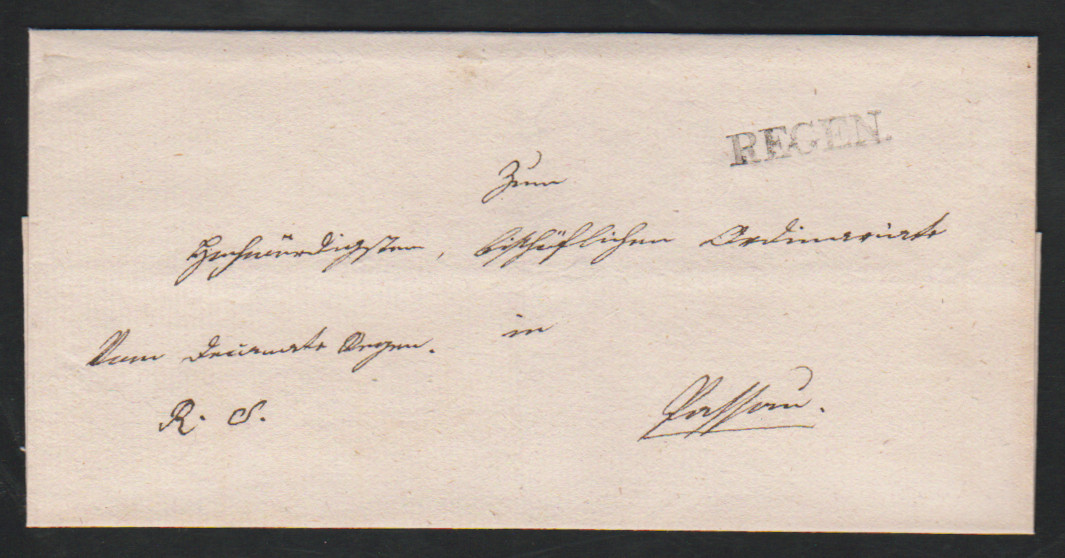 REGEN.
Zum
Hochwürdigsten, bischöflichen Ordinariate
in
Vom Decanate Regen.
R. S.
Passau.